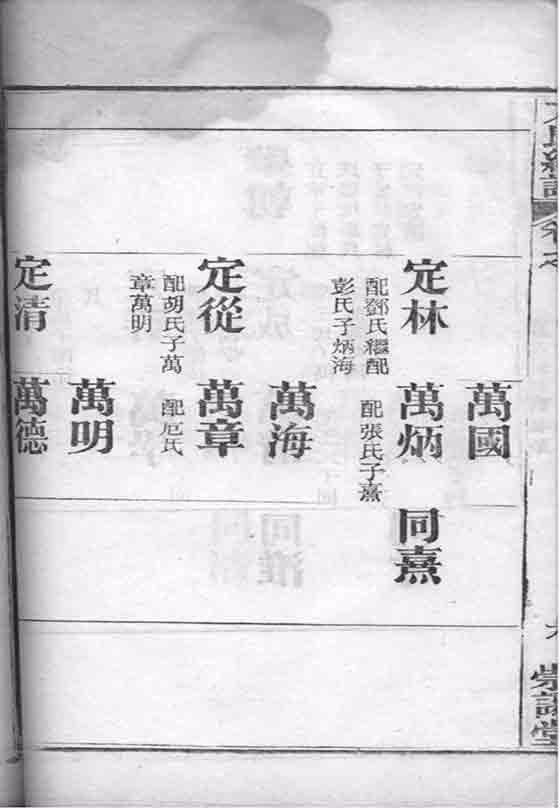 萬國
定林
配鄧氏繼配
彭氏子炳海
萬炳
配張氏子熹
同熹
萬海
定從
配胡氏子萬
章萬明
萬章
配 氏
萬明
定清
萬德